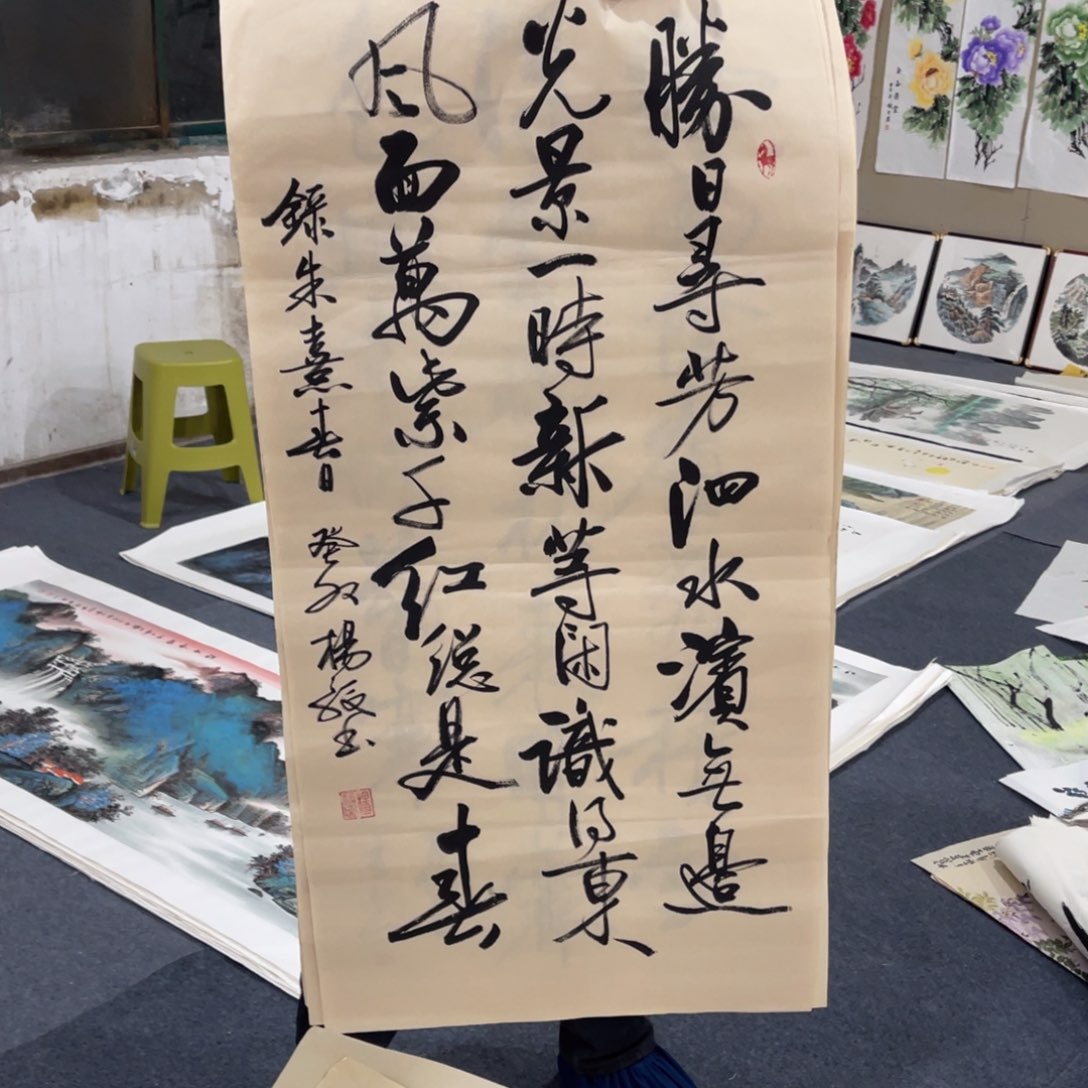 勝日尋芳泗水濱無邊
光景一時新等閑識得東
風面萬紫千紅總是春
錄朱熹春日 癸卯 楊 書